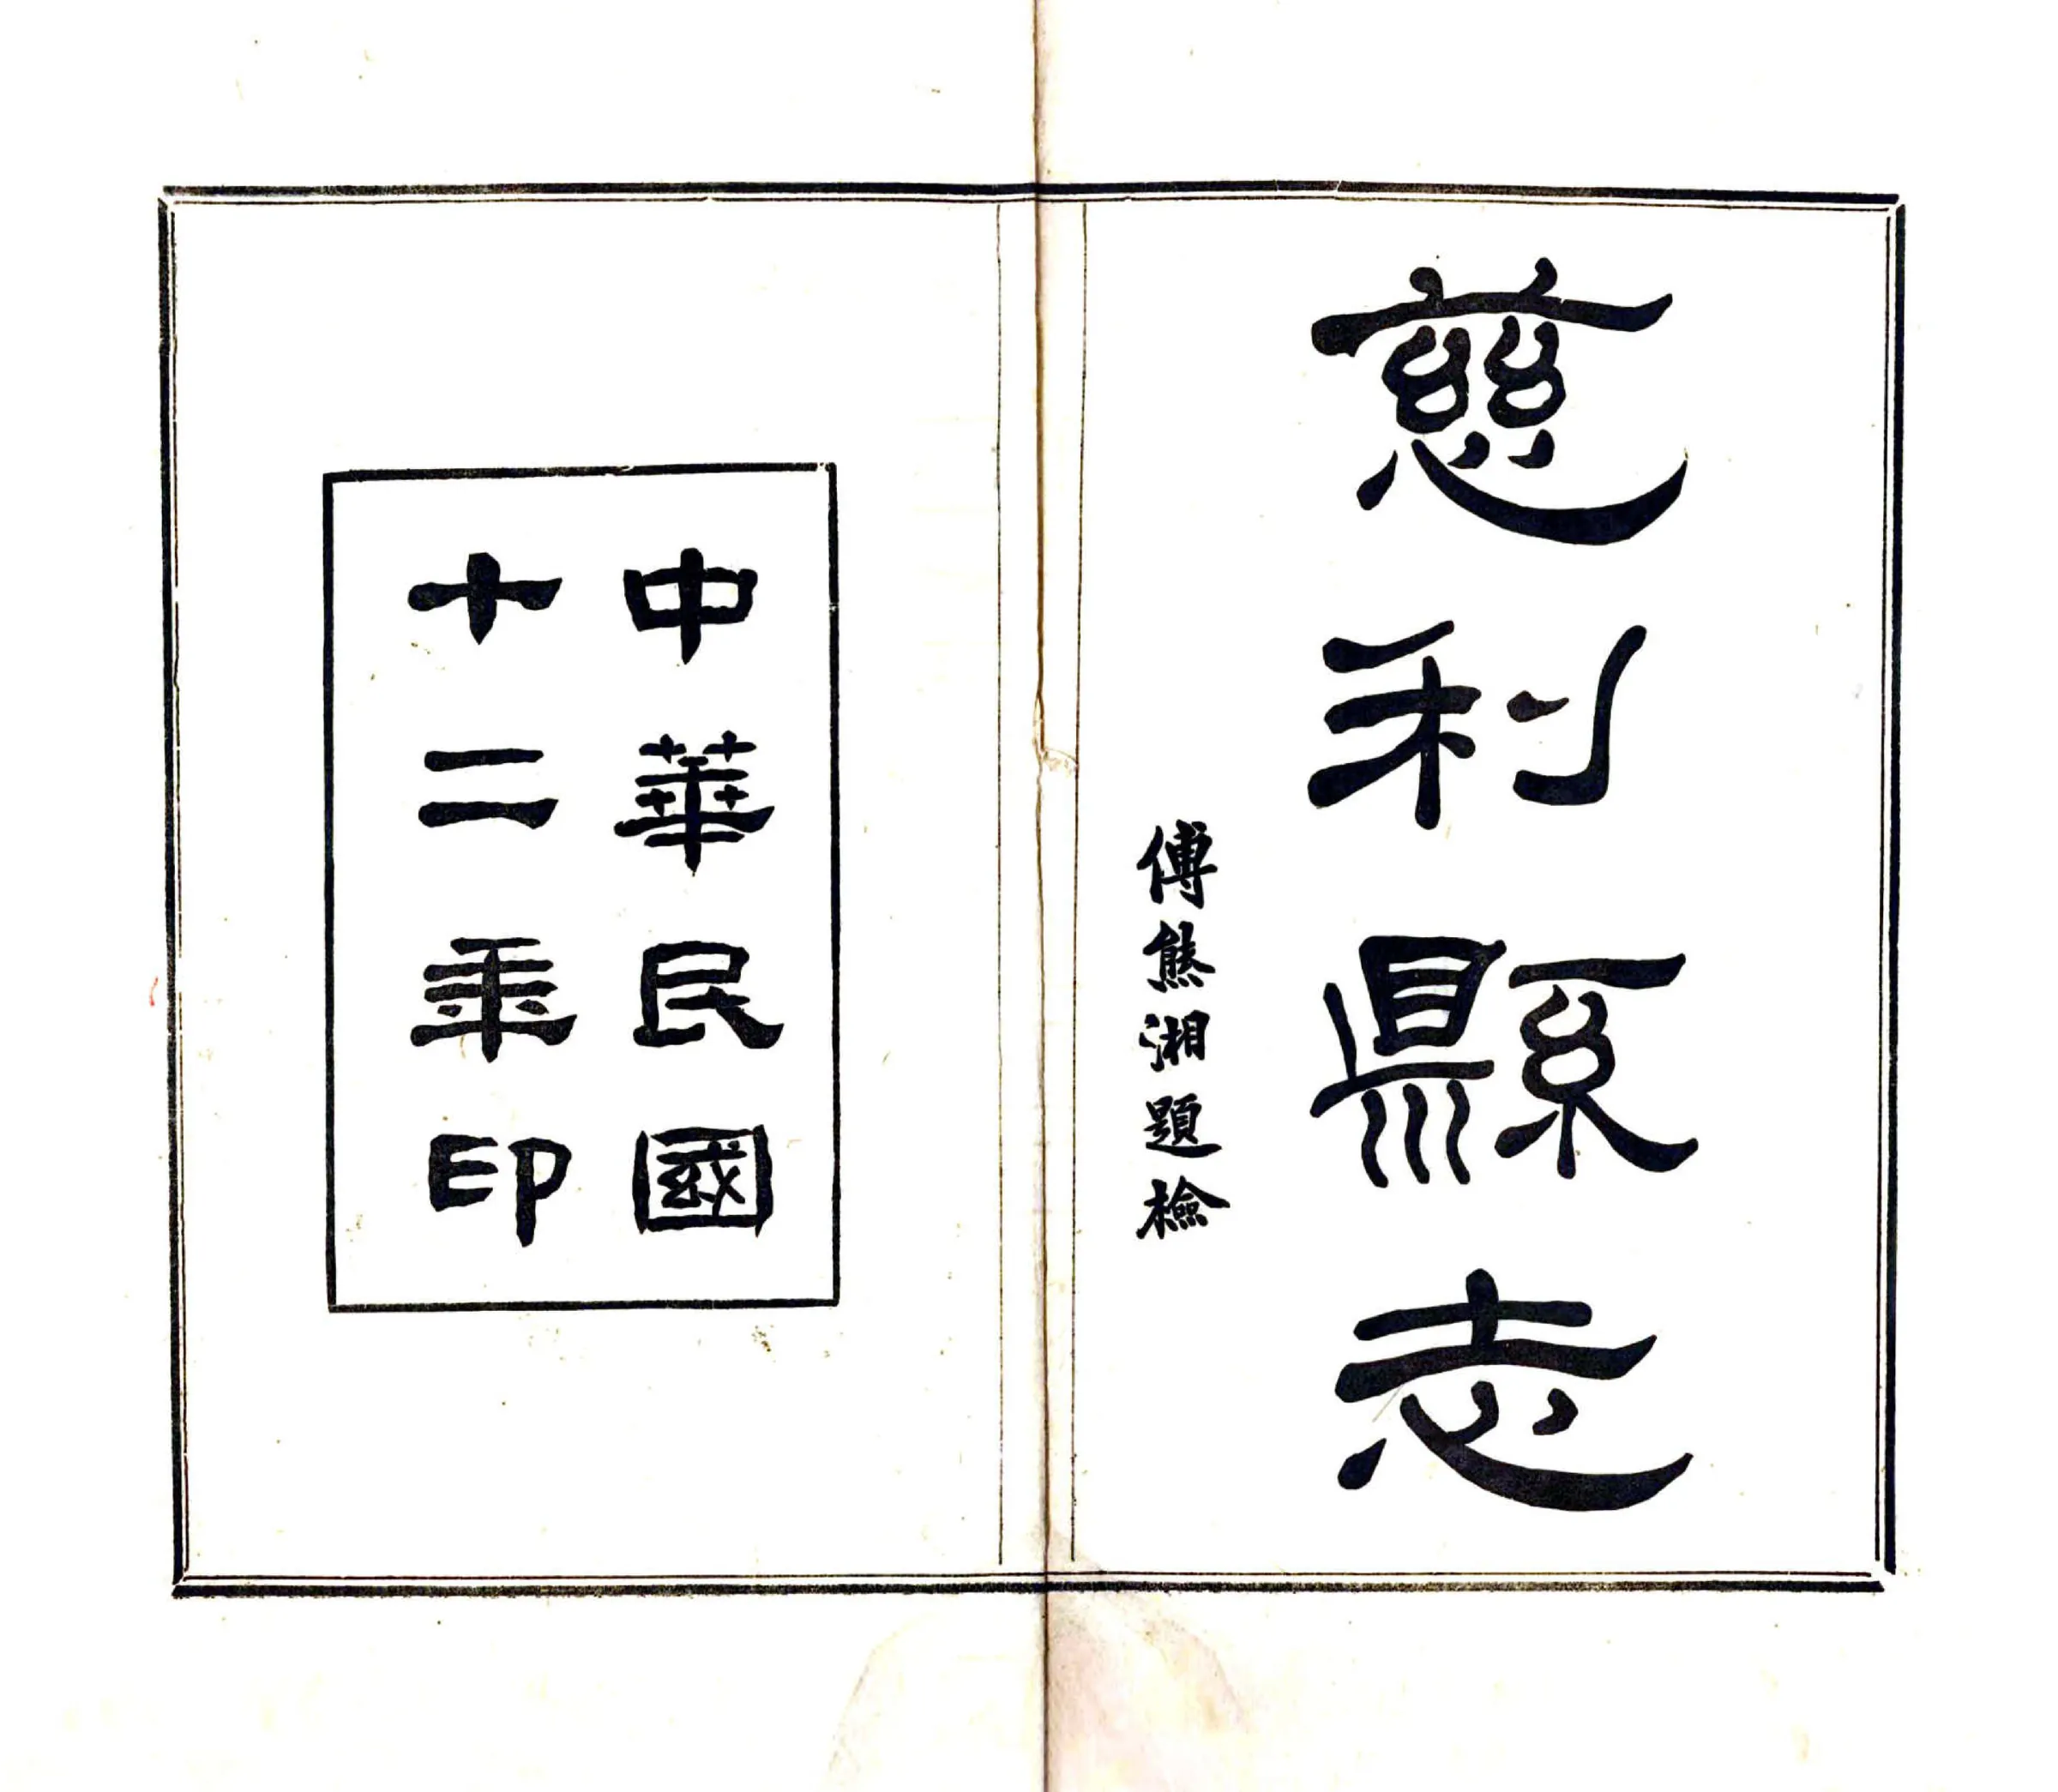 慈利縣志
傅熊湘題檢
中華民國
十二年印